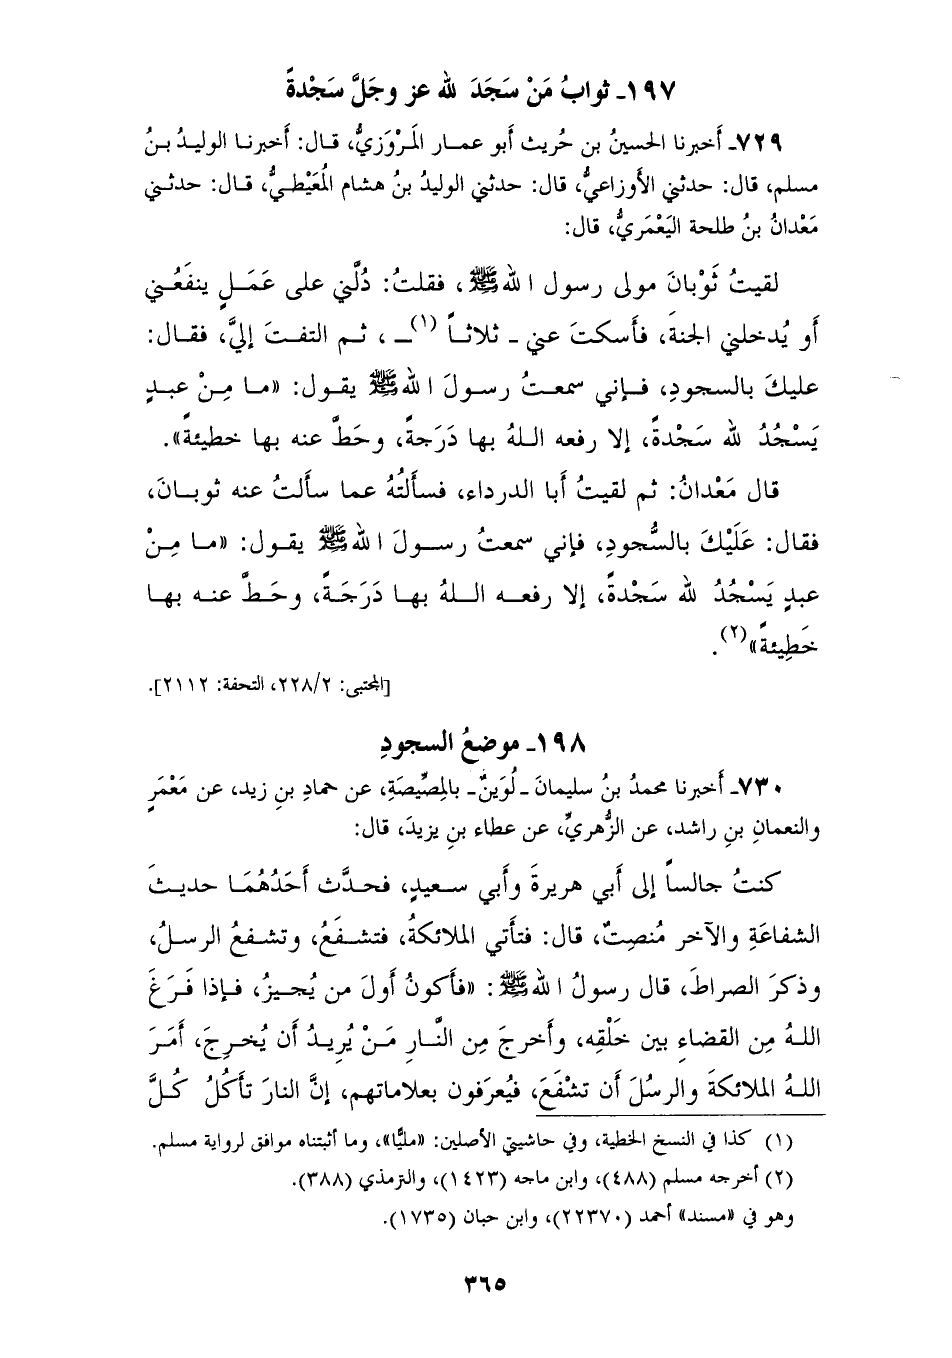 ١٩٧ـ ثوابُ مَنْ سَجَدَ لله عز وجَلَّ سَجْدةً
٧٢٩ـ أخبرنا الحسينُ بن حُريث أبو عمار المَرْوَزيُّ، قال: أخبرنا الوليدُ بنُ
مسلم، قال: حدثني الأوزاعيُّ، قال: حدثني الوليدُ بنُ هشام المُعَيْطيُّ، قال: حدثني
مَعْدانُ بنُ طلحة اليَعْمَريُّ، قال:
لقيتُ ثَوْبانَ مولى رسول الله ﷺ، فقلتُ: دُلَّني على عَمَلٍ ينفَعُني
أو يُدخلني الجنةَ، فأسكتَ عني ـ ثلاثاً (١) ـ، ثم التفتَ إليَّ، فقال:
عليكَ بالسجودِ، فإني سمعتُ رسولَ الله ﷺ يقول: «ما مِنْ عبدٍ
يَسْجُدُ لله سَجْدةً، إلا رفعه اللهُ بها دَرَجةً، وحَطَّ عنه بها خطيئةً».
قال مَعْدانُ: ثم لقيتُ أبا الدرداء، فسألتُهُ عما سألتُ عنه ثوبانَ،
فقال: عَلَيْكَ بالسُّجودِ، فإني سمعتُ رسولَ الله ﷺ يقول: «ما مِنْ
عبدٍ يَسْجُدُ لله سَجْدةً، إلا رفعه اللهُ بها دَرَجَةً، وحَطَّ عنه بها
خَطِيئةً» (٢).
[المجتبى: ٢٢٨/٢، التحفة: ٢١١٢].
١٩٨ـ موضعُ السجودِ
٧٣٠ـ أخبرنا محمدُ بنُ سليمانَ ـ لُوَينٌ ـ بالمِصِّيصَةِ، عن حمادِ بنِ زيد، عن مَعْمَرٍ
والنعمانِ بنِ راشد، عن الزُّهريِّ، عن عطاء بنِ يزيدَ، قال:
كنتُ جالساً إلى أبي هريرةَ وأبي سعيدٍ، فحدَّث أحَدُهُمَا حديثَ
الشفاعَةِ والآخر مُنصِتٌ، قال: فتأتي الملائكةُ، فتشفَعُ، وتشفعُ الرسلُ،
وذكرَ الصراطَ، قال رسولُ الله ﷺ: «فأكونُ أولَ من يُجيزُ، فإذا فَرَغَ
اللهُ مِن القضاءِ بين خَلْقِه، وأخرجَ مِن النَّارِ مَنْ يُريدُ أن يُخرِجَ، أمَرَ
اللهُ الملائكةَ والرسُلَ أن تشْفَعَ، فيُعرَفون بعلاماتهم، إنَّ النارَ تأكُلُ كُلَّ
(١) كذا في النسخ الخطية، وفي حاشيتي الأصلين: «مليًّا»، وما أثبتناه موافق لرواية مسلم.
(٢) أخرجه مسلم (٤٨٨)، وابن ماجه (١٤٢٣)، والترمذي (٣٨٨).
وهو في «مسند» أحمد (٢٢٣٧٠)، وابن حبان (١٧٣٥).
٣٦٥